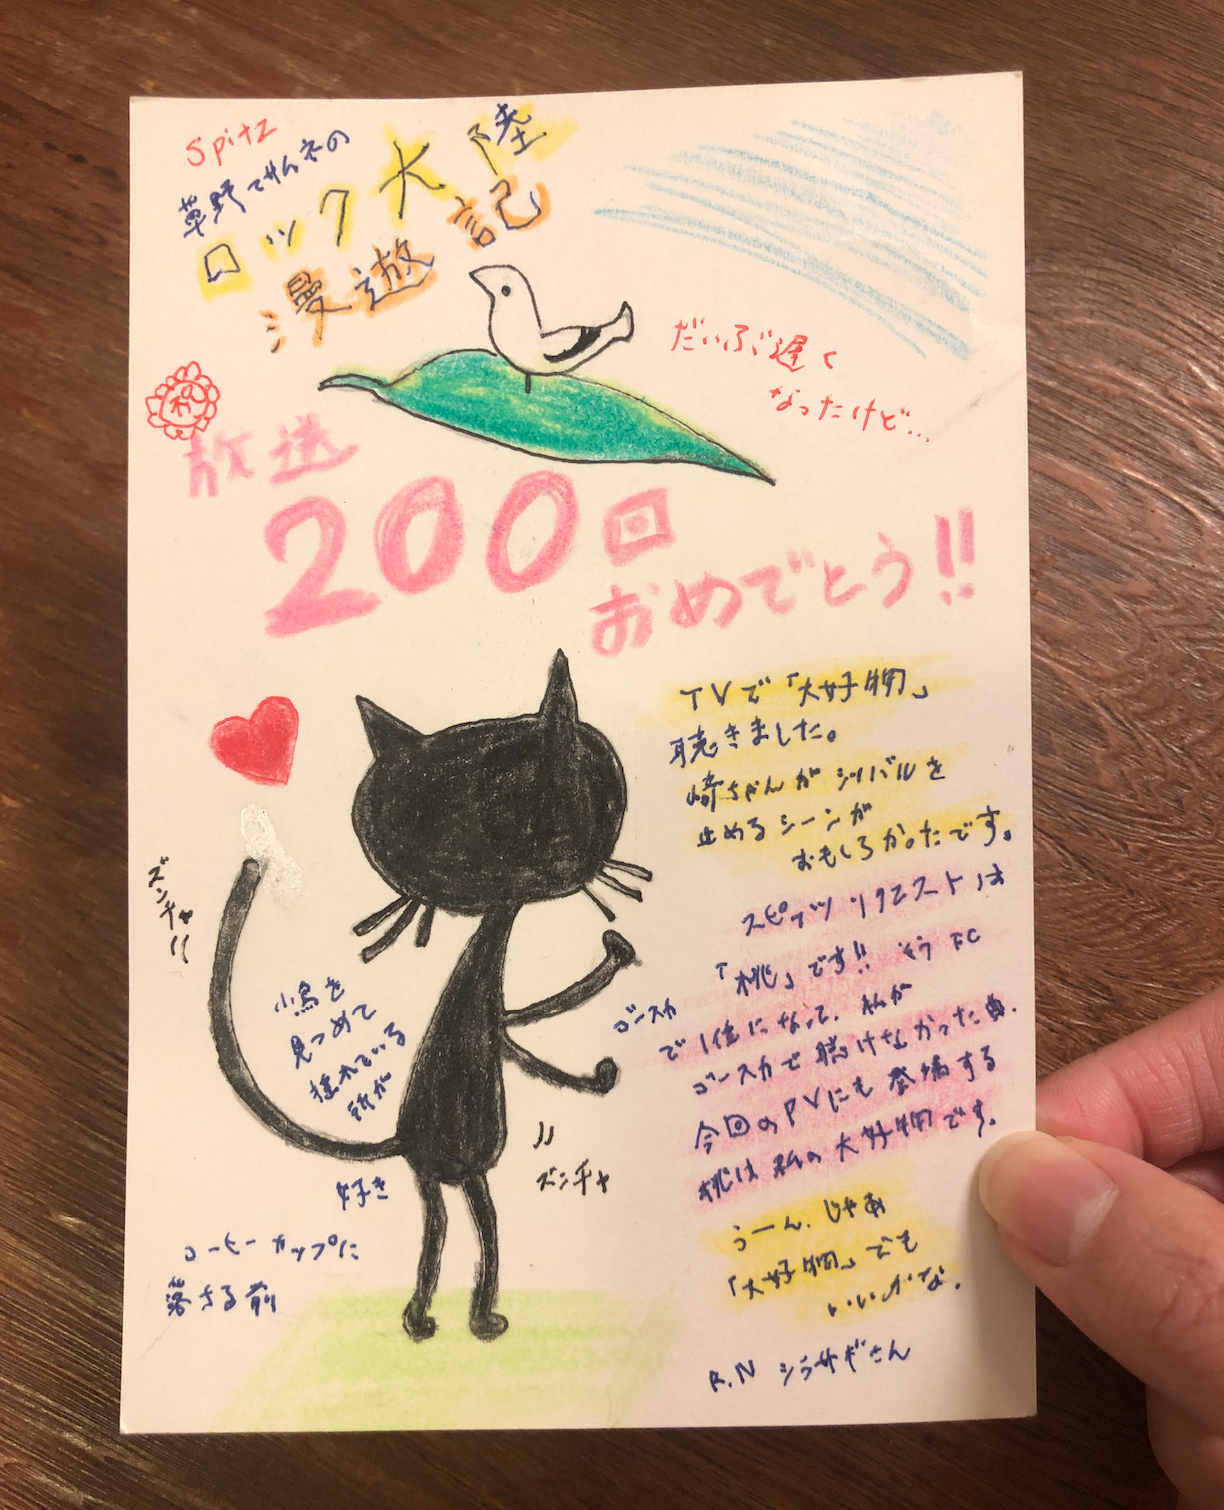 Spitz
草野マサムネの
ロック大陸
漫遊記
だいぶ遅く
なったけど…
祝
放送
200回
おめでとう!!
TVで「大好物」
聴きました。
崎ちゃんがシリバルを
止めるシーンが
おもしろかったです。
スピッツリクエストは
「桃」です!! そう FC
で1位になって、私が
ゴースカで聴けなかった曲.
今回のPVにも登場する
桃は私の大好物です。
うーん、じゃあ
「大好物」でも
いいかな.
R.N シラサギさん
ズンチャ
小鳥を
見つめて
揺れている
好き
ゴースカ
ズンチャ
コーヒーカップに
落ちる前